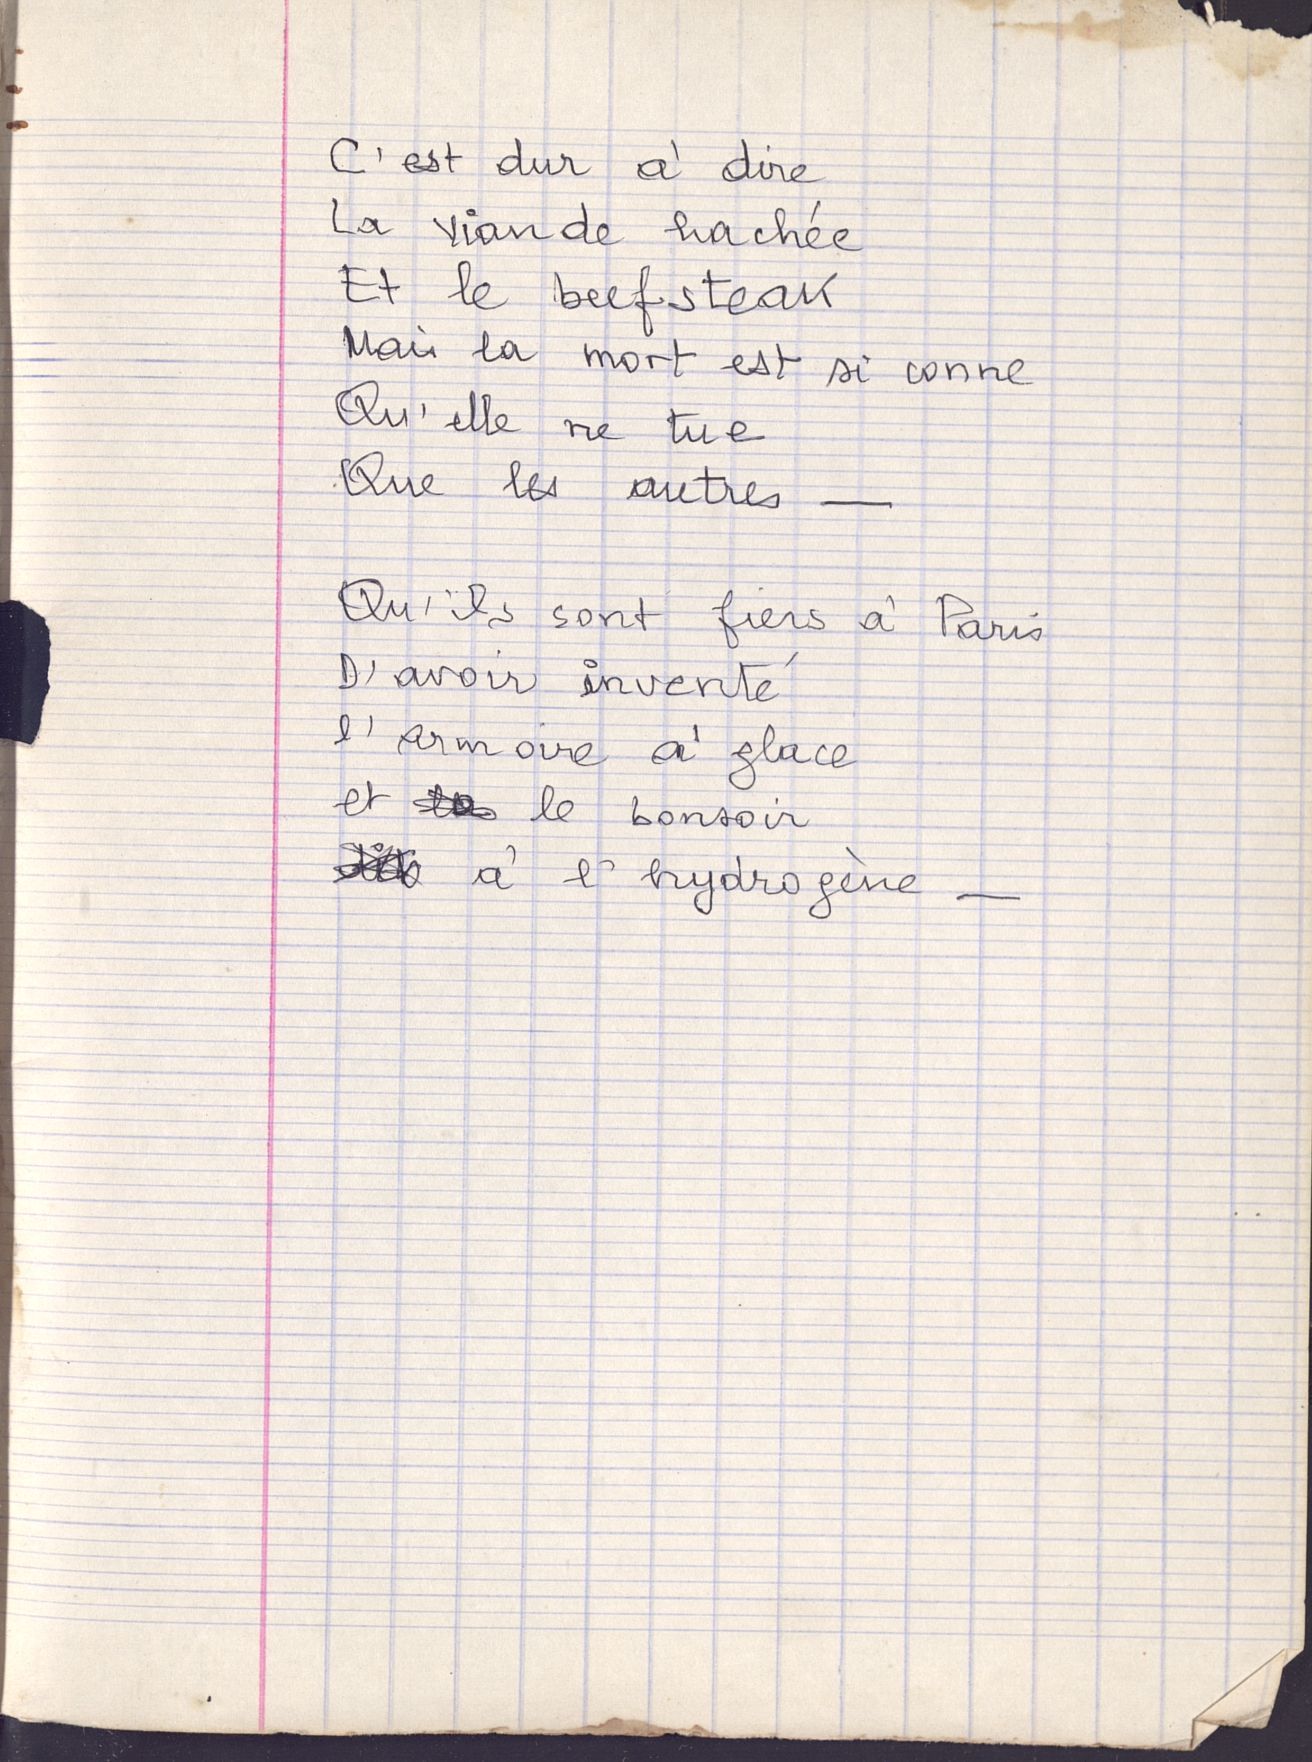 C'est dur à dire
La viande hachée
Et le beefsteak
Mais la mort est si conne
Qu'elle ne tue
Que les autres —
Qu'ils sont fiers à Paris
D'avoir inventé
l'armoire à glace
et le bonsoir
à l'hydrogène —